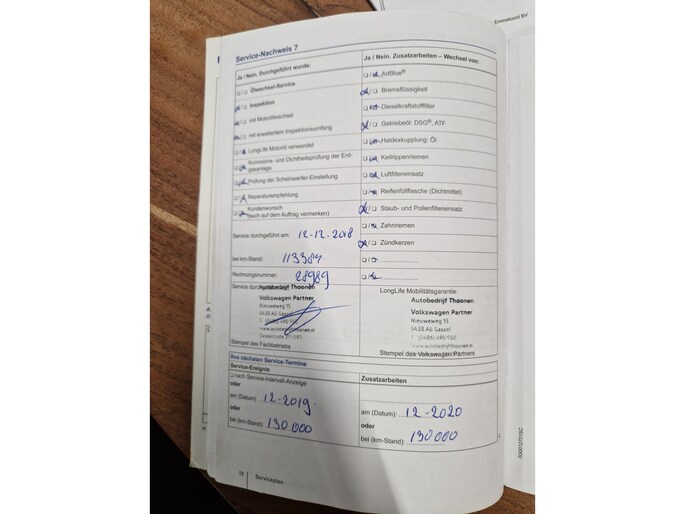 Emmeloord BV
Service-Nachweis 7
Ja / Nein. Durchgeführt wurde:
□/□ Ölwechsel-Service
/□ Inspektion
/□ mit Motorölwechsel
/□ mit erweitertem Inspektionsumfang
□/ LongLife Motoröl verwendet
Korrosions- und Dichtheitsprüfung der Erdgasanlage
Prüfung der Scheinwerfer-Einstellung
Reparaturempfehlung
Kundenwunsch
(siehe auch auf dem Auftrag vermerken)
Service durchgeführt am: 12-12-2018
bei km-Stand: 113384
Rechnungsnummer: 28989
Service durch
Autobedrijf Thoonen
Volkswagen Partner
Nieuweweg 15
5438 AG Gassel
T (0486) 490 950
www.autobedrijfthoonen.nl
Stempel des Fachbetriebs
Ja / Nein. Zusatzarbeiten – Wechsel von:
□/ AdBlue®
/□ Bremsflüssigkeit
Dieselkraftstofffilter
/□ Getriebeöl: DSG®, ATF
Haldexkupplung: Öl
Keilrippenriemen
Luftfiltereinsatz
Reifenfüllflasche (Dichtmittel)
/□ Staub- und Pollenfiltereinsatz
Zahnriemen
/□ Zündkerzen
LongLife Mobilitätsgarantie:
Autobedrijf Thoonen
Volkswagen Partner
Nieuweweg 15
5438 AG Gassel
T (0486) 490 950
www.autobedrijfthoonen.nl
Stempel des Volkswagen Partners
Ihre nächsten Service-Termine
Service-Ereignis
□ nach Service-Intervall-Anzeige
oder
am (Datum): 12-2019
oder
bei (km-Stand): 130.000
Zusatzarbeiten
am (Datum): 12-2020
oder
bei (km-Stand): 130000
18 Serviceplan